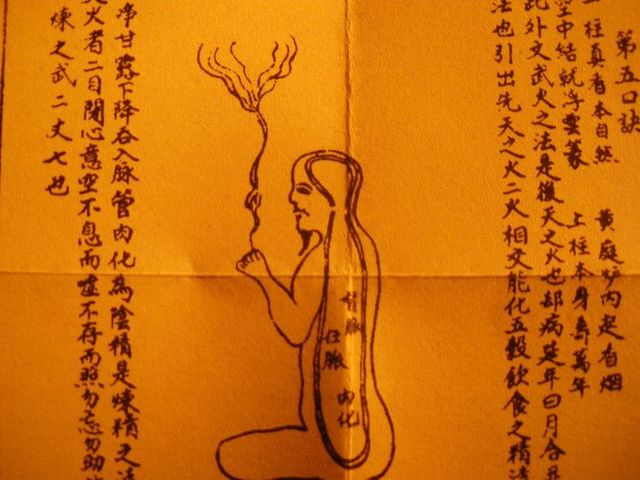 第五口訣
柱真香本自然 黄庭炉內起香烟
空中結就浮雲篆 上柱本身壽萬年
此外文武火之法是後天之火也却病延年曰月合
法也引出先天之火二火相交能化五穀飲食之精
督脈
任脈
肉化
淨甘露下降吞入脈管肉化為陰精是煉精之法
火者二目閉心意空不息而虛不存而照勿忘勿助
煉之武二丈七也